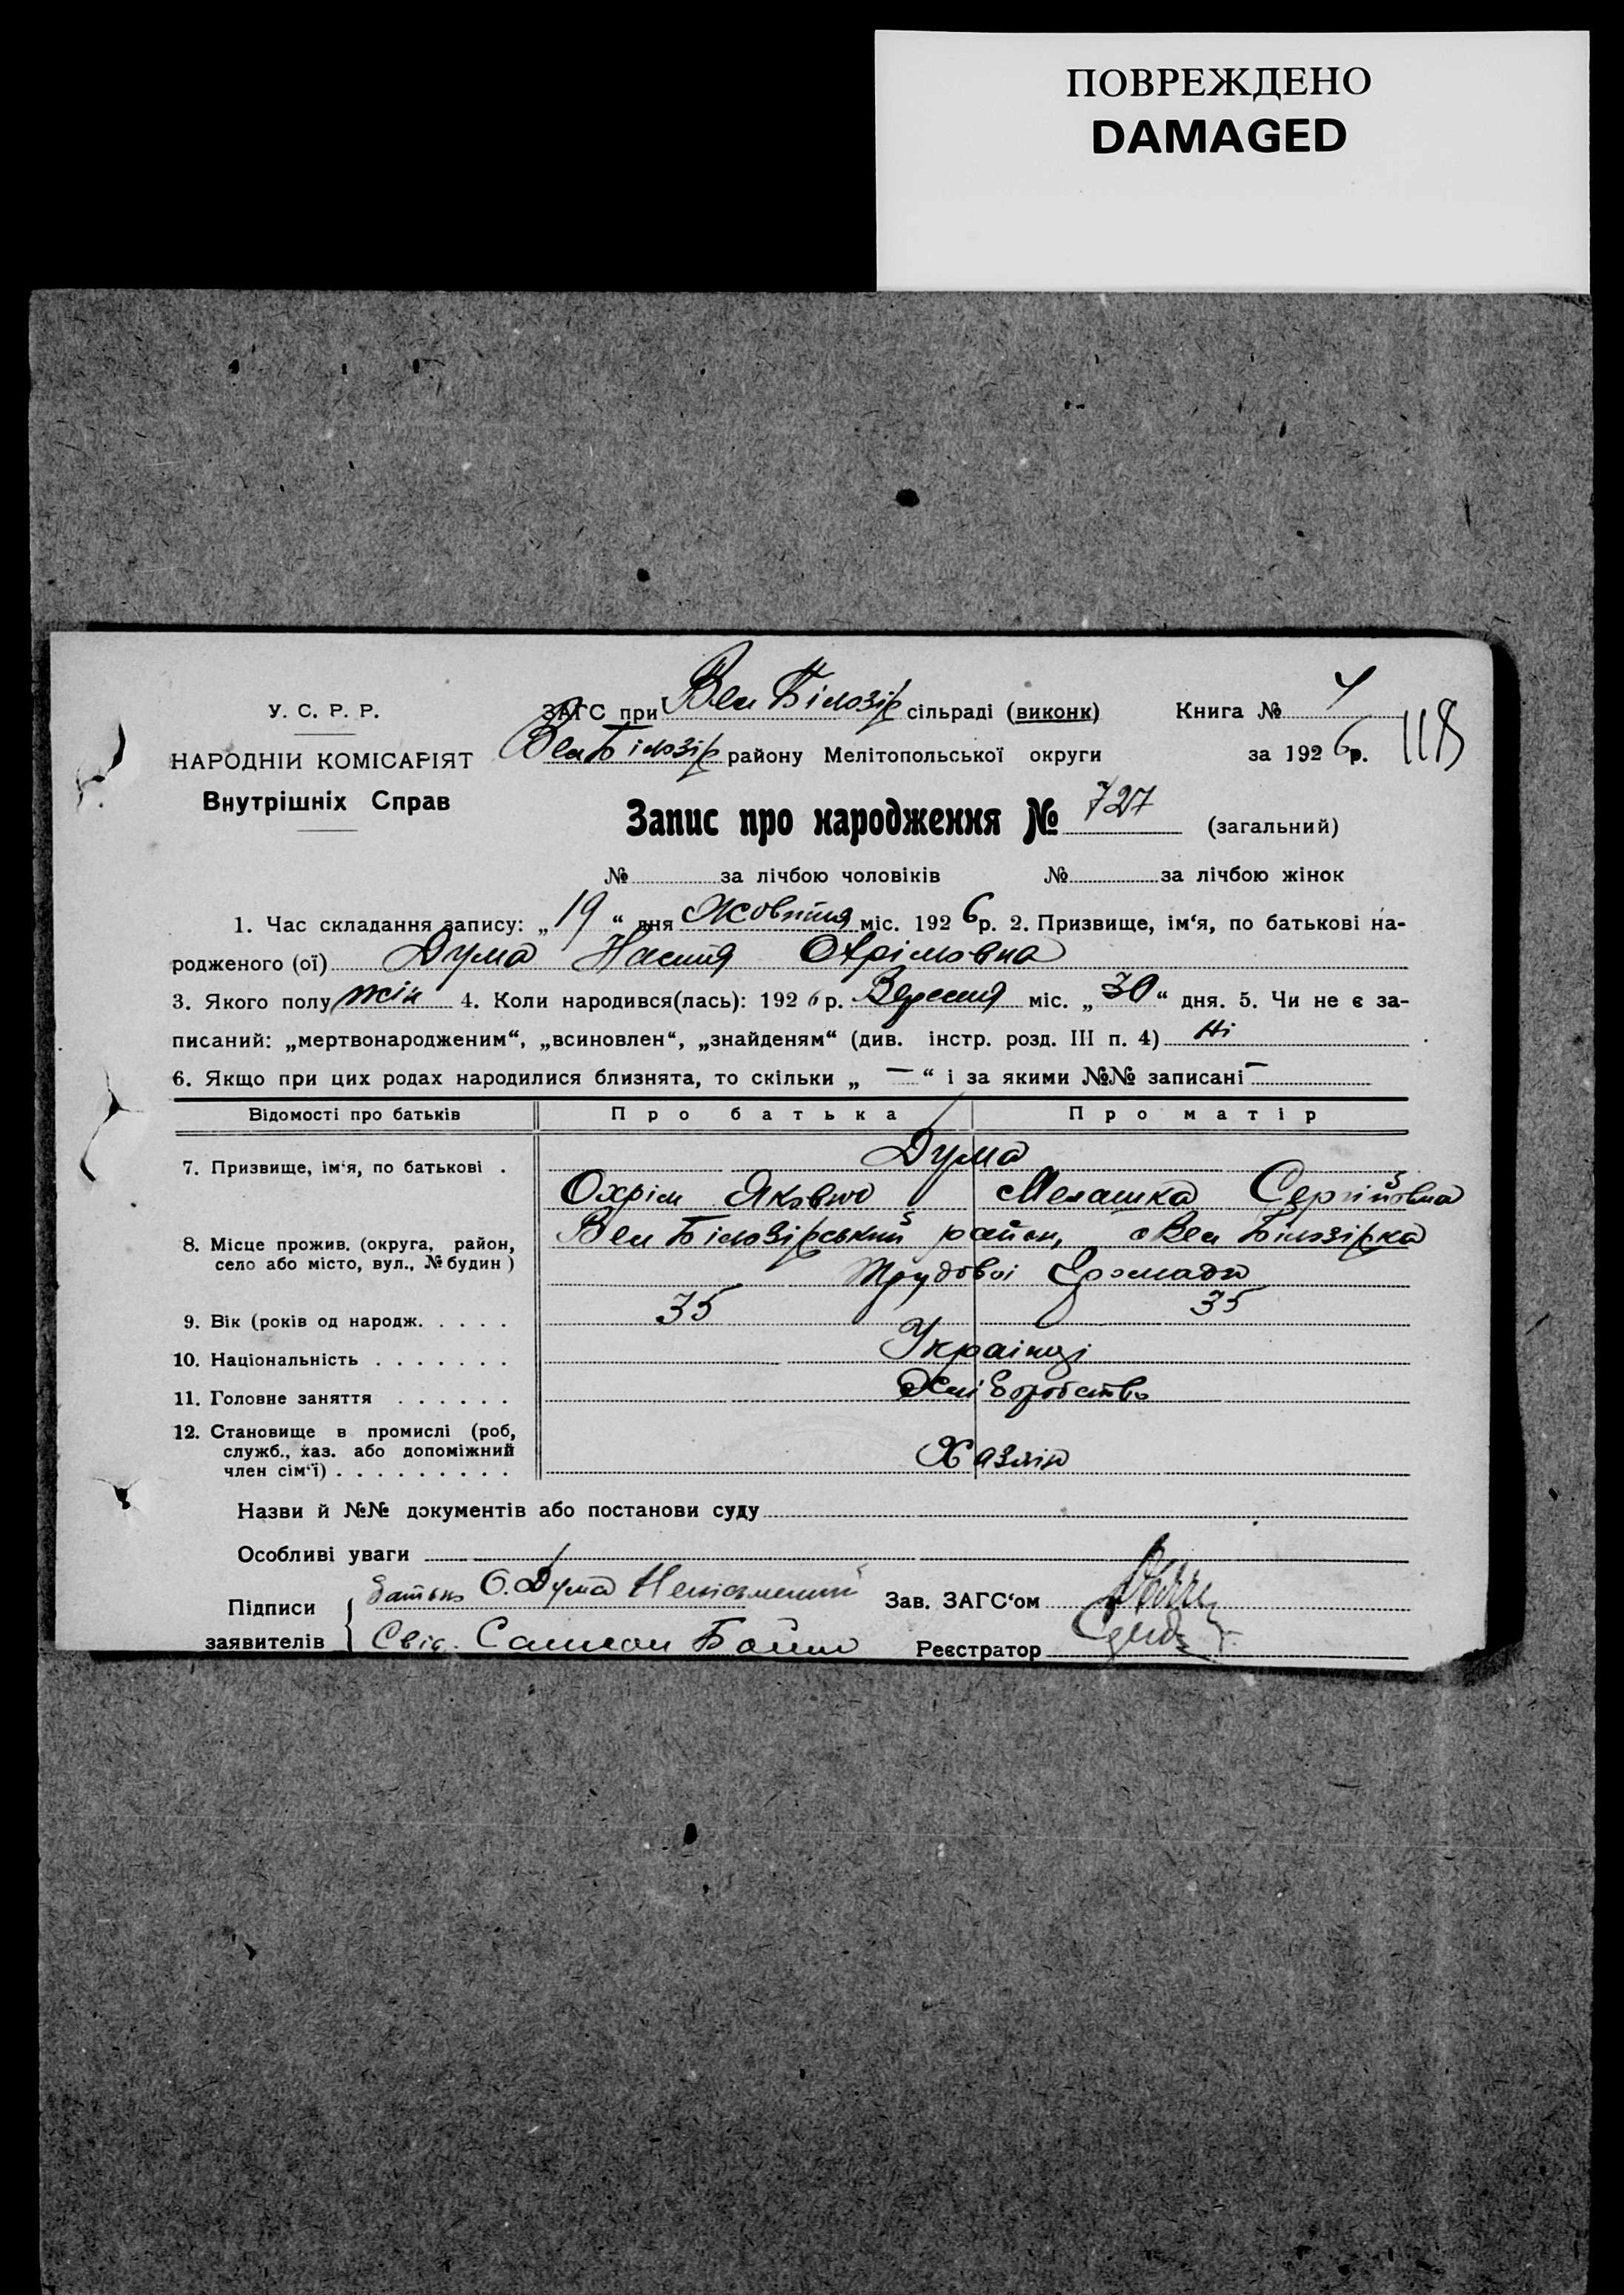 ПОВРЕЖДЕНО
DAMAGED
У. С. Р. Р.
НАРОДНІЙ КОМІСАРІЯТ
Внутрішніх Справ
ЗАГС при Вел Білозір сільраді (виконк)
Вел Білозір району Мелітопольської округи
Книга №
за 1926 р. 118
Запис про народження № 727 (загальний)
№ за лічбою чоловіків № за лічбою жінок
1. Час складання запису: „19“ дня Жовтня міс. 1926 р. 2. Призвище, ім‘я, по батькові на-
родженого (ої) Дума Настя Охрімовна
3. Якого полу жін 4. Коли народився(лась): 1926 р. Вересня міс. „30“ дня. 5. Чи не є за-
писаний: „мертвонародженим“, „всиновлен“, „знайденям“ (див. інстр. розд. III п. 4) Ні
6. Якщо при цих родах народилися близнята, то скільки „ — “ і за якими №№ записані —
Відомості про батьків Про батька Про матір
7. Призвище, ім‘я, по батькові . Дума
Охрім Якович Мелашка Сергійовна
8. Місце прожив. (округа, район, село або місто, вул., № будин) Вел Білозірський район, с Вел Білозірка
Трудової Громади
9. Вік (років од народж. . . . . 35 35
10. Національність . . . . . . . Українці
11. Головне заняття . . . . . . Хліборобство
12. Становище в промислі (роб,
служб., хаз. або допоміжний
член сім‘ї) . . . . . . . . . Хазяїн
Назви й №№ документів або постанови суду
Особливі уваги
Підписи батько О. Дума Неписьменний Зав. ЗАГС‘ом
заявителів Свід. Бойко Реєстратор